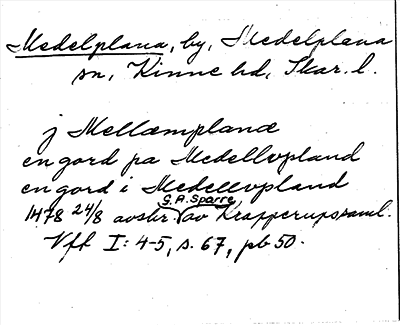 Medelplana, by, Medelplana
sn, Kinne hd, Skar. l.
j Mellæmplanæ
en gord pa Medellvpland
en gord i Medellvpland
G. A. Sparre
1478 24/8 avskr. av Krapperupssaml.
Vff I: 4-5, s. 67, pb 50.